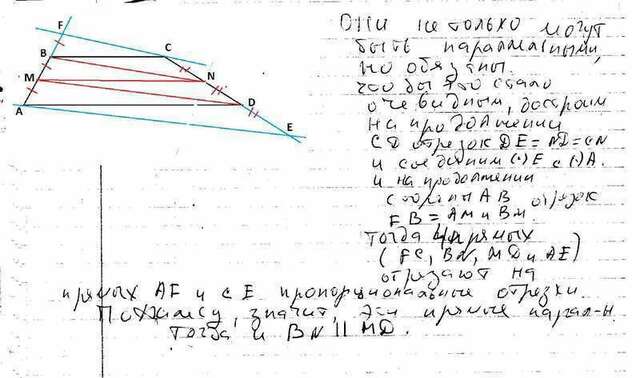 F
B
C
M
N
A
D
E
Они не только могут
быть параллельными,
но обязаны.
чтобы это стало
очевидным, достроим
на продолжении
CD отрезок DE=ND=CN
и соединим (·)E с (·)A.
и на продолжении
стороны AB отрезок
FB = AM и BM.
Тогда 4 прямых
(FC, BN, MD и AE)
отрезают на
прямых AF и CE пропорциональные отрезки.
По Фалесу, значит, эти прямые парал-ы.
Тогда и BN || MD.